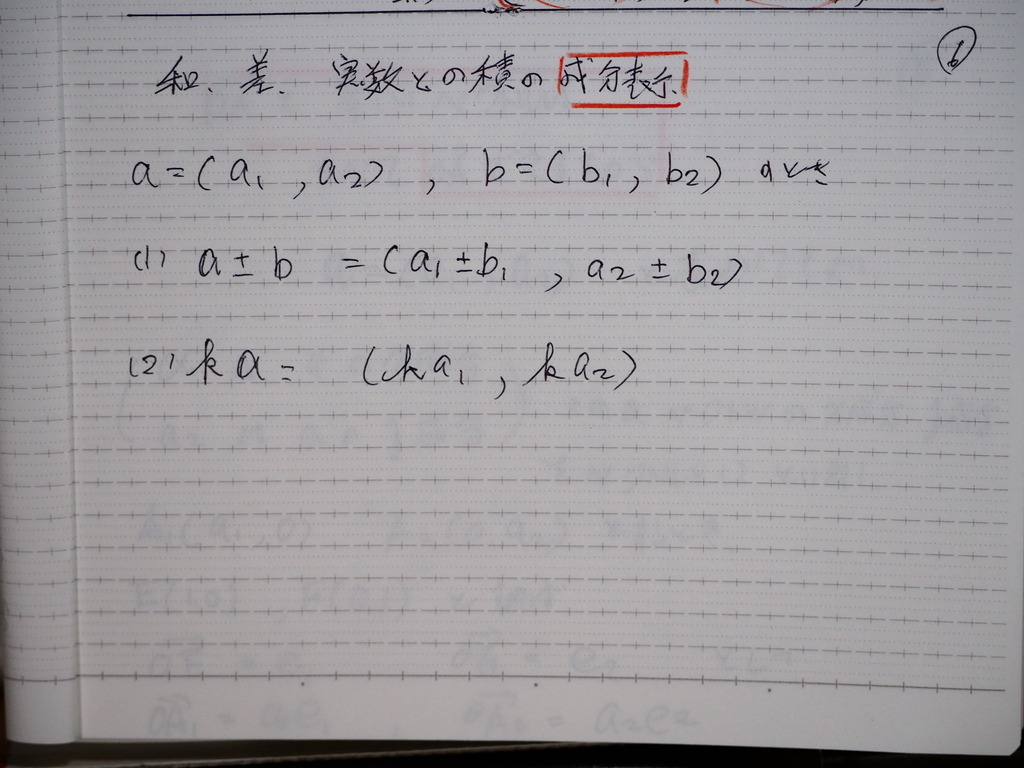 ⑥
和、差、実数との積の成分表示
a=(a₁, a₂), b=(b₁, b₂) のとき
(1) a±b =(a₁±b₁, a₂±b₂)
(2) ka= (ka₁, ka₂)